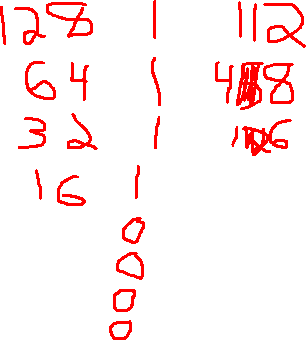 128 1 112
64 1 48
32 1 16
16 1
0
0
0
0